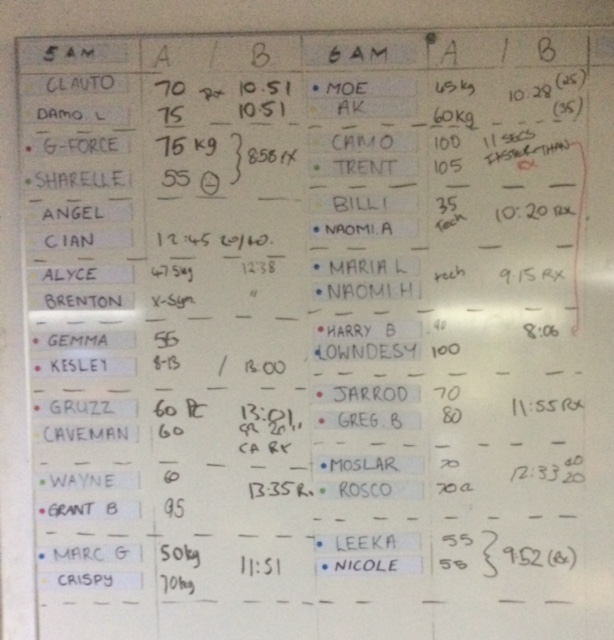 5 AM A / B
CLAUTO 70 Rx 10.51
DAMO L 75 10.51
G-FORCE 75 kg
8:58 rx
SHARELLE 55
ANGEL
CIAN 12:45 20/40.
ALYCE 47.5kg 12:38
BRENTON X-Sym "
GEMMA 55
KESLEY 8-13 / 13:00
GRUZZ 60 13:01
CAVEMAN 60
RX
WAYNE 60
13:35
GRANT B 95
MARC G 50kg
11:51
CRISPY 70kg
6 AM A / B
MOE 45kg (25)
10.28
AK 60kg (35)
CAMO 100 11 SECS
TRENT 105 FASTER THAN
BILLI 35
tech 10:20 Rx
NAOMI.A
MARIA L tech 9.15 RX
NAOMI H
HARRY B 90 8:06
LOWNDESY 100
JARROD 70
11:55 Rx
GREG. B 80
MOSLAR 70
12:33 20
ROSCO 70
LEEKA 55
9:52 (Rx)
NICOLE 55